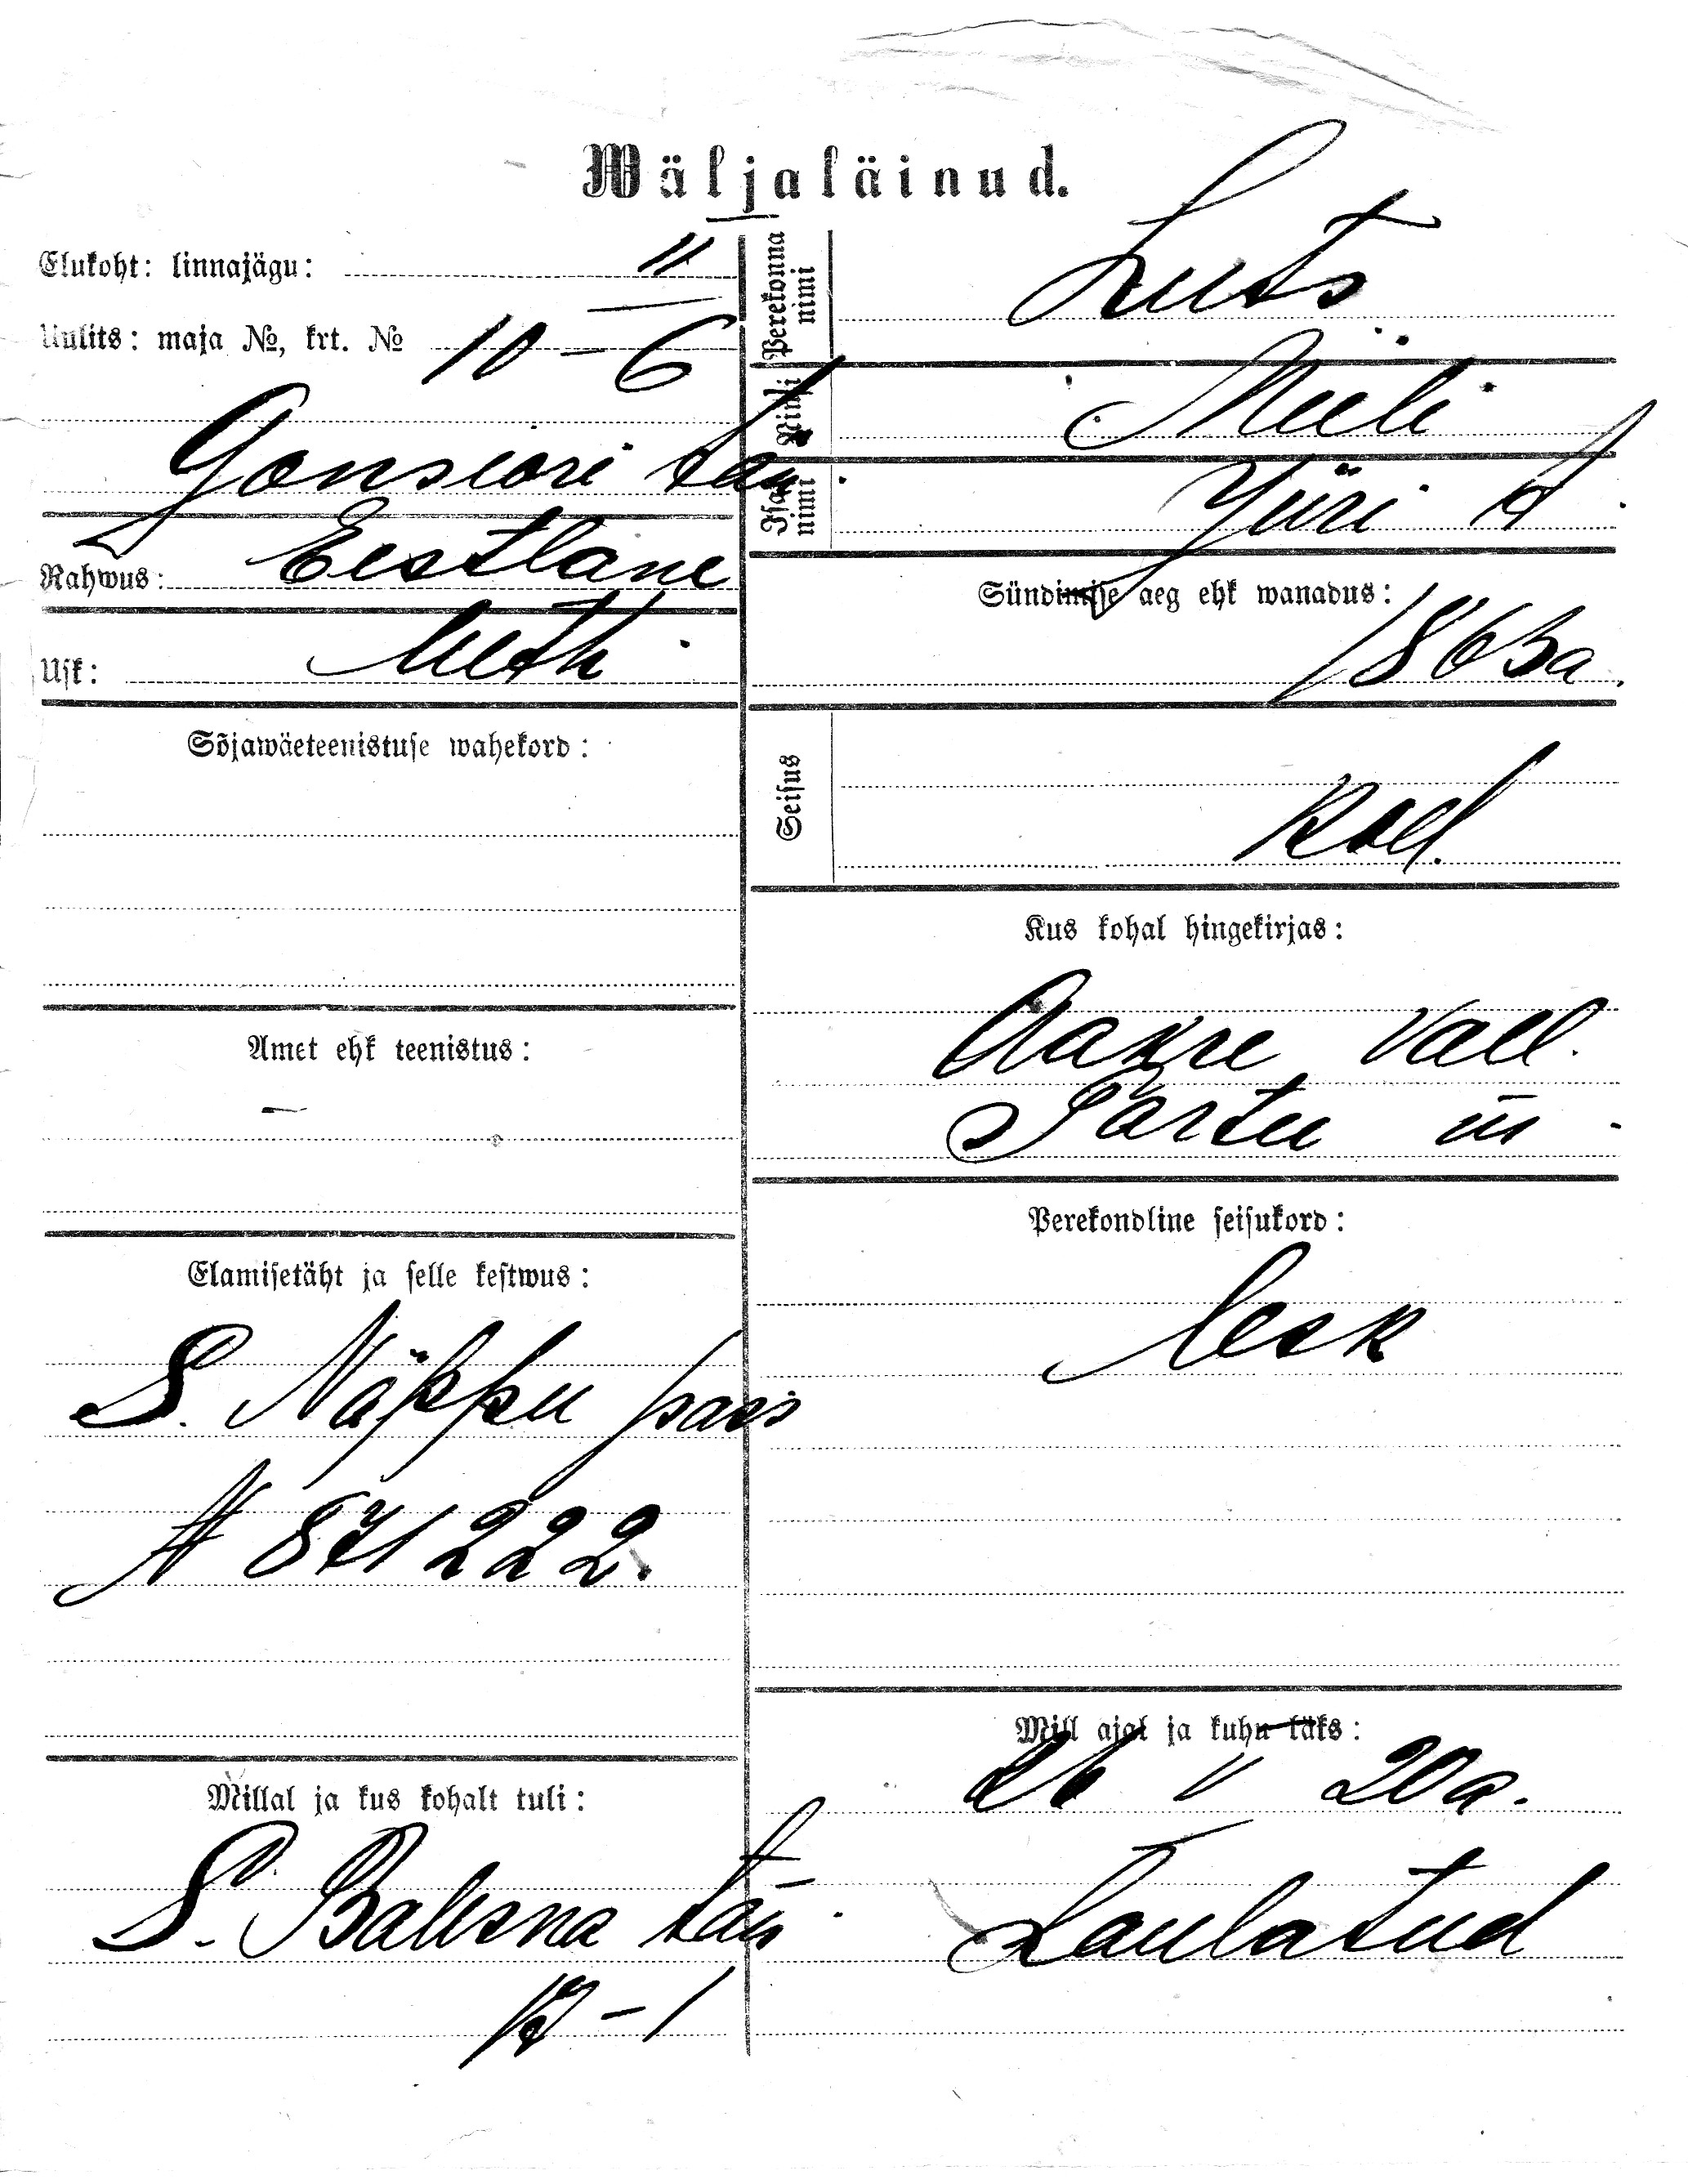 Wäljaläinud.
Elukoht: linnajägu: II
Uulits: maja №, krt. № 10 - 6
Gonsiori tän.
Rahwus: Eestlane
Usk: Luth.
Sõjawäeteenistuse wahekord:
Amet ehk teenistus:
—
Elamisetäht ja selle kestwus:
S. Näppu pass
N 871222.
Millal ja kus kohalt tuli:
S. tän.
12 - 1
Perekonna nimi Luts
Nimi
Isa nimi Jüri t.
Sündimise aeg ehk wanadus:
1863a.
Seisus
Kus kohal hingekirjas:
Aakre vall.
Tartu m.
Perekondline seisukord:
lesk
Mill ajal ja kuhu läks:
26 V 20a.
Laulatud